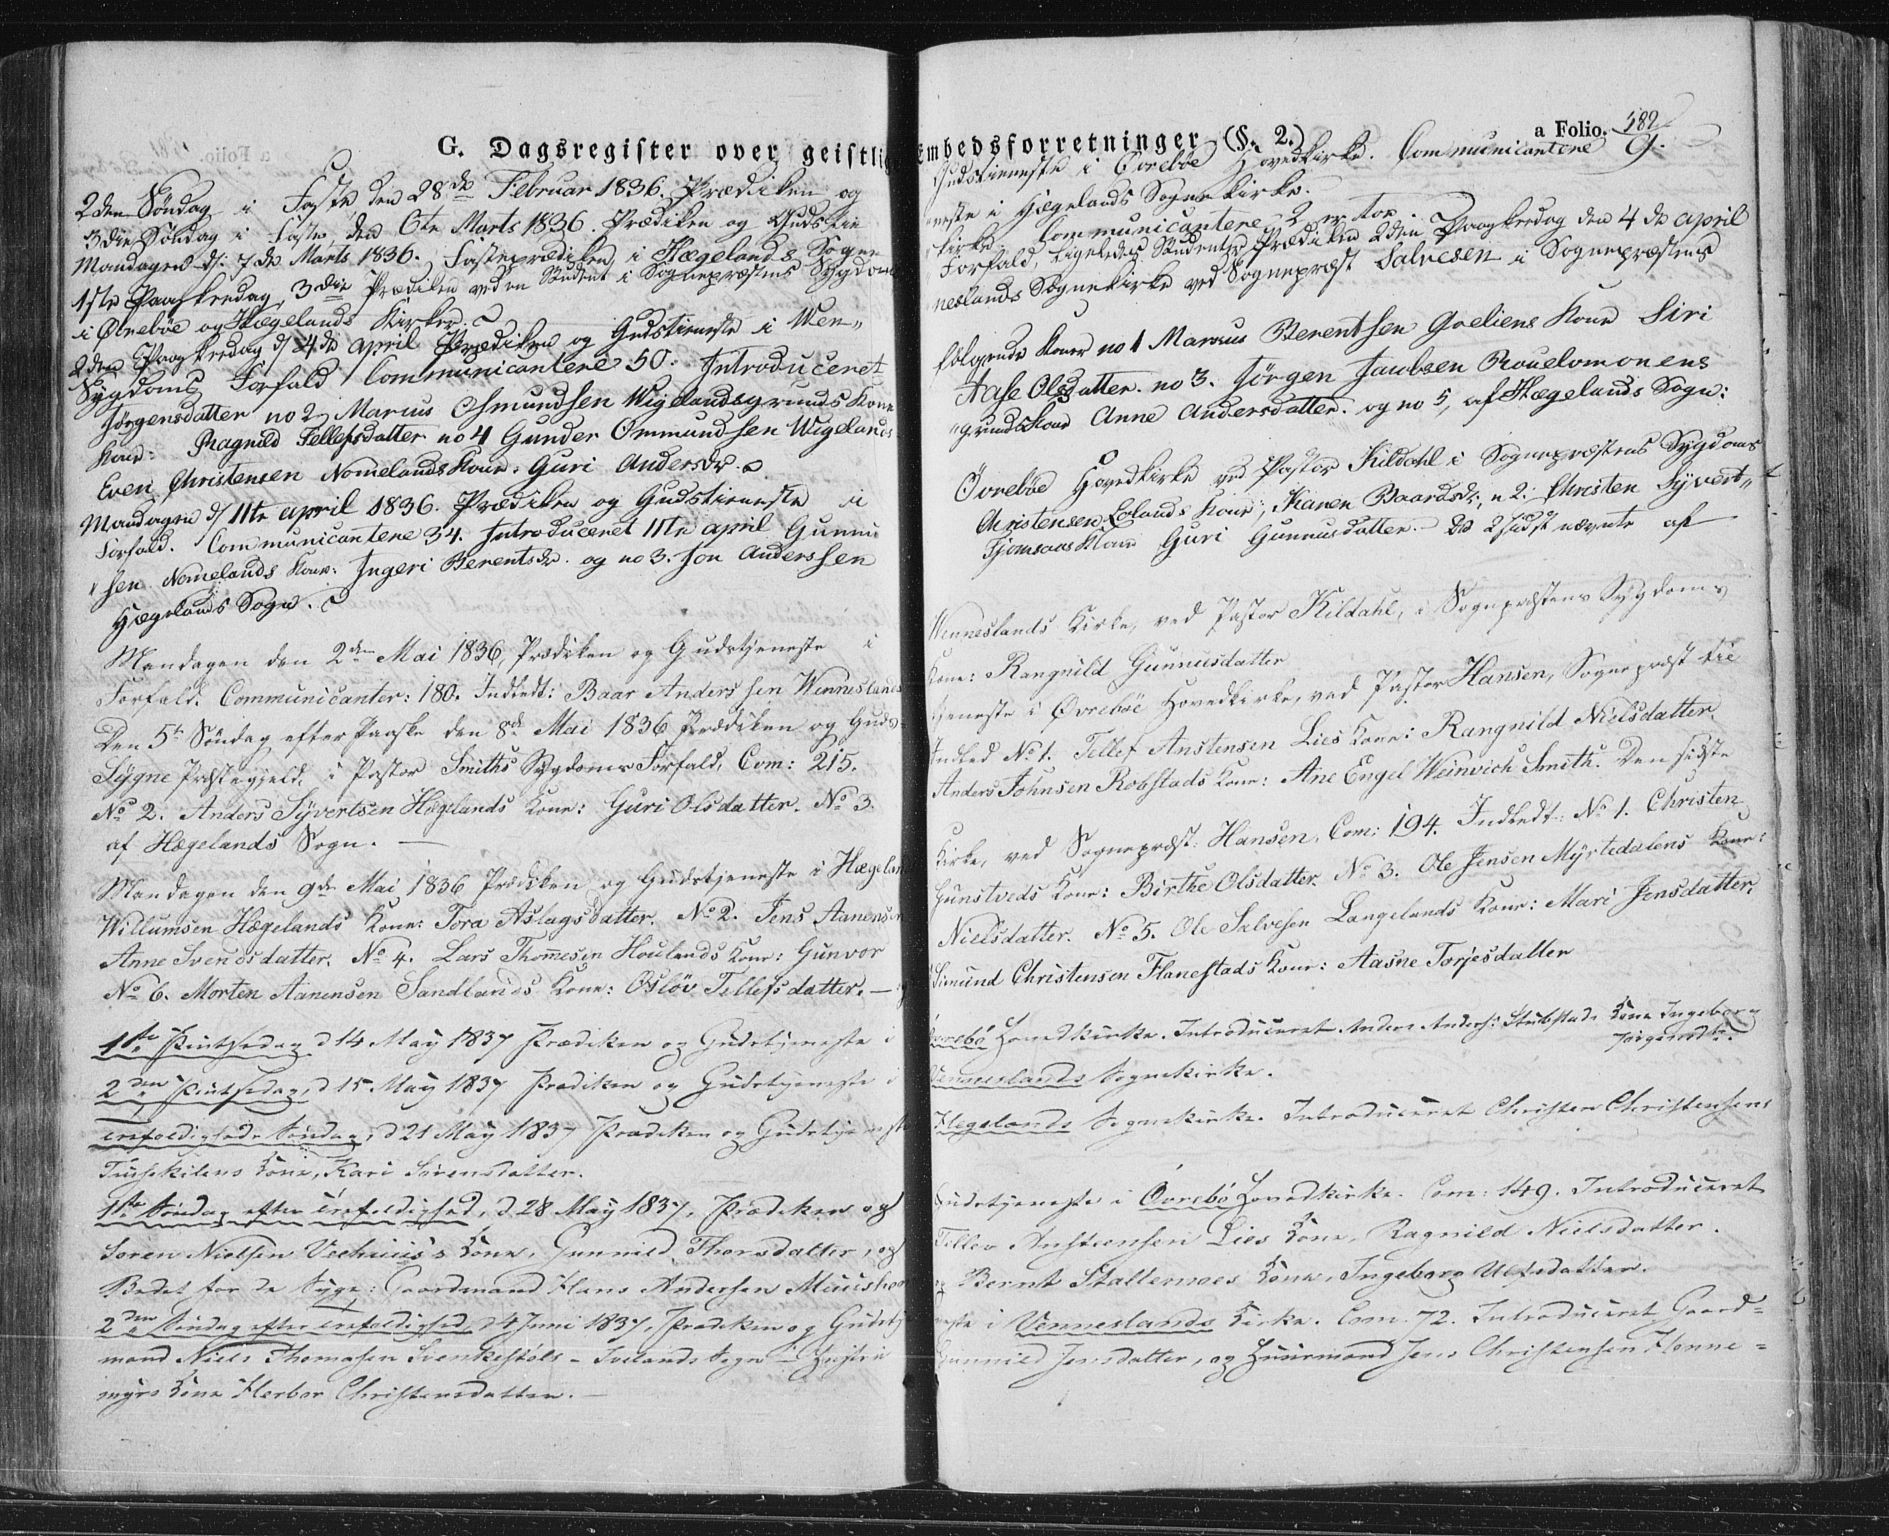 G. Dagsregister over geistlig Embedsforretninger (§. 2.) a Folio. 582
2den Söndag i Faste den 28de Februar 1836. Prædiken og Gudstieneste i Övreböe Hovedkirke. Communicantere 9.
3die Söndag i Faste, den 6te Marts 1836. Prædiken og Gudstie neste i Hægelands Sognekirke.
Mandagen d: 7de Marts 1836. Fasteprædiken i Hægelands Sogne kirke Communicantere 2
1ste Paaskedag, 3die Prædiken ved en Student i Sognepræstens Sygdoms Forfald, Ligeledes Studenter Prædiken 2den Paaskedag den 4de April
i Övreböe og Hægelands Kirker.
2den Paaskedag d 4de april Prædiken og Gudstieneste i Wen„ neslands Sognekirke ved Sognepræst Salvesen i Sognepræstens
Sygdoms Forfald Communicantere 50. Introduceret fölgende Koner no 1 Marcus Berentsen Kone Siri
Jörgensdatter no 2 Marius Osmundsen Wigelandsgrunds Kone Aase Olsdatter. no 3. Jörgen Jacobsen
Kone: Ragnild Tellefsdatter no 4 Gunder Ommundsen Wigelands „grunds Kone Anne Andersdatter. og no 5, af Hægelands Sogn:
Even Christensen Nomelands Kone: Guri Andersdr.
Mandagen d 11te april 1836. Prædiken og Gudstieneste i Övreböe Hovedkirke ved Pastor Kildahl i Sognepræstens Sygdoms
Forfald. Communicantere 34. Introduceret 11te april Gunnu Christensen Kone; Karen Baardsdr; n 2. Christen Syvert„
sen Nomelands Kone. Ingeri Berentsdr. og no 3. Jon Anderssen Fjomsaas Kone Guri Gunnusdatter. De 2 sidst nævnte af
Hægelands Sogn.
Mandagen den 2den Mai 1836, Prædiken og Gudstjeneste i Wenneslands Kirke, ved Pastor Kildahl, i Sognepræstens Sygdoms
Forfald. Communicanter: 180. Indledt: Baar Anderssen Wenneslands Kone: Rangnild Gunnusdatter
Den 5te Söndag efter Paaske den 8de Mai 1836 Prædiken og Guds= tjeneste i Øvreböe Hovedkirke, ved Pastor Hansen, Sognepræst til
Sygne Præstegjeld, i Pastor Smiths Sygdoms Forfald, Com: 215. Indled No 1. Tellef Anstensen Lies Kone: Rangnild Nielsdatter.
No 2. Anders Syvertsen Hægelands Kone: Guri Olsdatter. No 3. Anders Johnsen Robstads Kone: Ane Engel Weinvich Smith. Den sidste
af Hægelands Sogn.
Mandagen den 9de Mai 1836 Prædiken og Gudstjeneste i Hægelands Kirke, ved Sognepræst: Hansen, Com: 194. Indledt: No 1. Christen
Willumsen Hægelands Kone: Tora Aslagsdatter. No 2. Jens Aanensen Gunstveds Kone: Birthe Olsdatter. No 3. Ole Jensen Myrtedalens Kone:
Anne Svendsdatter. No 4. Lars Thomesen Houlands Kone: Gunvor Nielsdatter. No 5. Ole Salvesen Langelands Kone: Mari Jensdatter.
No 6. Morten Aanensen Sandlands Kone: Oslöv Tellefsdatter. — Simund Christensen Flanestads Kone: Aasne Torjesdatter
1ste Pintsedag d 14 May 1837 Prædiken og Gudstjeneste i Øvrebø Hovedkirke. Introduceret Anders Anders: Stubstads Kone Ingeborg Jörgensdtr.
2den Pintsedag, d 15. May 1837 Prædiken og Gudstjeneste i Venneslands Sognekirke.
Trefoldigheds Søndag, d 21 May 1837 Prædiken og Gudstjeneste Hegelands Sognekirke. Introduceret Christen Christensens
Kone, Kari Sörensdatter.
1ste Söndag efter Trefoldighed, d 28 May 1837, Prædiken og Gudstjeneste i Øvrebø Hovedkirke. Com: 149. Introduceret
Sören Nielsen Kone, Gunnild Thorsdatter, og Tellev Anstensen Lies Kone, Ragnild Nielsdatter.
Bedet for de Syge: Gaardmand Hans Andersen og Bernt Stallemoes Kone, Ingeborg Ulvsdatter.
2den Söndag efter Trefoldighed d 4 Juni 1837, Prædiken og Gudstje neste i Venneslands Kirke. Com. 72. Introduceret Gaard=
mand Niels Thomasen Svenkestöls – Ivelands Sogn – Hustru Gunnild Jensdatter, og Huusmand Jens Christensen Honne=
myrs Kone Herbor Christensdatter. —